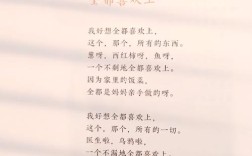 全都喜欢上
我好想全都喜欢上，
这个，那个，所有的东西。
葱呀，西红柿呀，鱼呀，
一个不剩地全都喜欢上。
因为家里的饭菜，
全都是妈妈亲手做的呀。
我好想全都喜欢上，
这个，那个，所有的一切。
医生啦，乌鸦啦，
一个不剩地全都喜欢上。